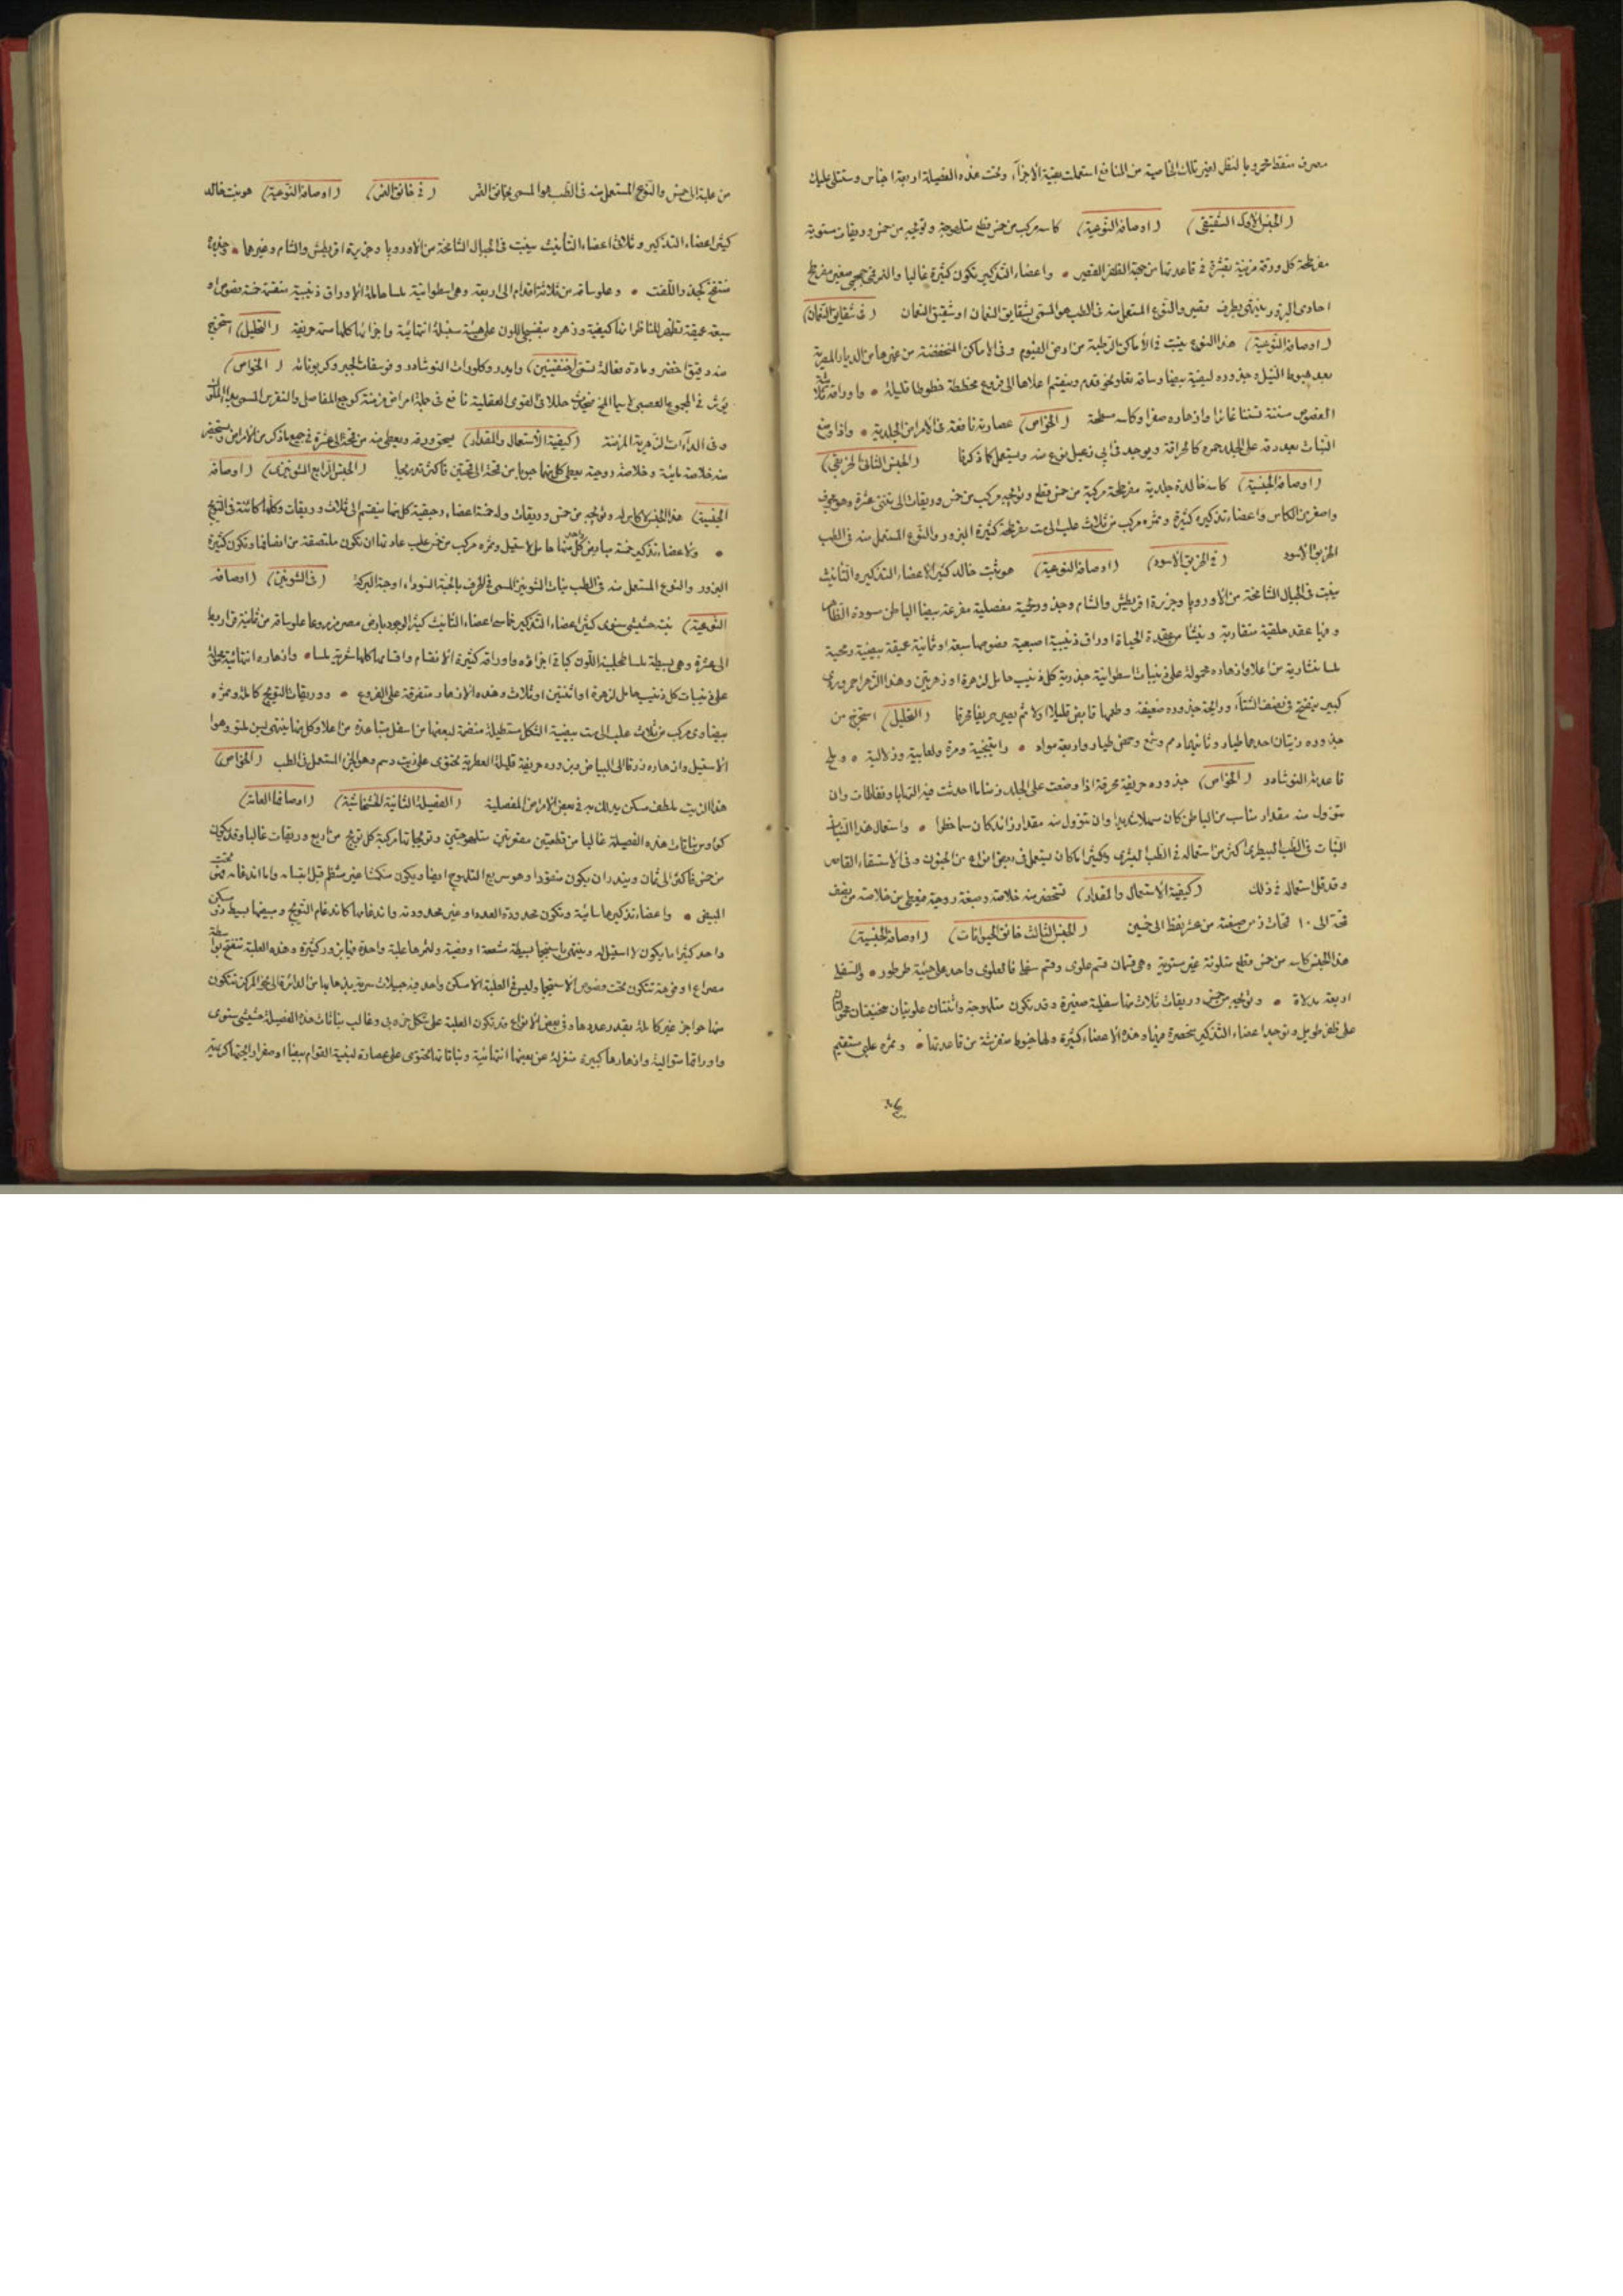 مصرف منقط مخمر وبالنظر لغير تلك الخاصية من المنافع استعملت بقية الاجزآء وتحت هذه الفصيلة اربعة اجناس وستتلى عليك
(الجنس الاول الشقيقى) (اوصافه النوعية) كاسه مركب من خمس قطع متلهوجة وتويجه من خمس وريقات مستوية
مفرطحة كل ورقة مزينة بقشرة فى قاعدتها من جهة الظفر القصير • واعضاء التذكير تكون كثيرة غالبا والثمر صغير مفرطح
احادى البزور ينتهى بطرف قصير والنوع المستعمل منه فى الطب هو المسمى بشقايق النعمان او شقيق النعمان (فى شقايق النعمان)
(اوصافه النوعية) هذا النوع ينبت فى الأماكن الرطبة من ارض الفيوم وفى الاماكن المنخفضة من غيرها من الديار المصرية
بعد هبوط النيل وجذوره ليفية بيضا وساقه تعلو نحو قدم وينقسم اعلاها الى فروع مخططة خطوطا قليلة • واوراقه ثلاثية
الفصوص مسننة تسننا غائرا وازهاره صفرا وكاسه مسطحة (الخواص) عصارته نافعة فى الامراض الجلدية • واذا وضع
النبات بعد دقه على الجلد حمره كالحرافة ويوجد فى نوع منه ويستعمل كما ذكرنا (الجنس الثانى الخربقى)
(اوصافه الجنسية) كاسه خالدة جلدية مفرطحة مركبة من خمس قطع وتويجه مركب من خمس وريقات الى اثنتى عشرة وهو مجوف
واصغر من الكاس واعضاء تذكيره كثيرة وثمره مركب من ثلاث علب الى ست مفرطحة كثيرة البزور والنوع المستعمل منه فى الطب
الخربق الاسود (فى الخربق الاسود) (اوصافه النوعية) هو نبت خالد كثير الاعضاء التذكيرية والتأنيث
ينبت فى الجبال الشامخة من الاوروپا وجزيرة اقريطش والشام وجذوره لحمية مفصلية مفرعة بيضا الباطن سودة الظاهر
وفيها عقد حلقية متقاربة وينشأ من عقدة الحياة اوراق ذنيبية اصبعية فصوصها سبعة او ثمانية عميقة بيضية رمحية
لمسا منشارية من اعلا وازهاره محمولة على ذنيبات اسطوانية جذرية كل ذنيب حامل لزهرة او زهرتين وهذا الزهر احمر وردى
كبير يتفتح فى نصف الشتآء ورائحة جذوره ضعيفة وطعمها قابض قليلا اولا ثم يصير حريفا محرقا (التحليل) استخرج من
جذوره زيتان احدهما طيار وثانيهما دسم وشمع وحمض طيار واربعة مواد • راتينجية ومرة ولعابية وزلالية • وملح
قاعدته النوشادر (الخواص) جذوره حريفة محرقة اذا وضعت على الجلد زمنا ما احدثت فيه التهابا ونفاطات وان
تنوول منه مقدار مناسب من الباطن كان مسهلا شديدا وان تنوول منه مقدار زائد كان سما خطرا • واستعمال هذا النبات
النبات فى الطب البيطرى اكثر من استعماله فى الطب البشرى وكثيرا ما كان يستعمل فى بعض انواع من الجنون وفى الاستسقاء القاصر
وقد قل استعماله فى ذلك (كيفية الاستعمال والمقدار) تستحضر منه خلاصة وصبغة روحية فيعطى من خلاصة من نصف
قمحة الى ١٠ قمحات ومن صبغته من عشر نقط الى خمسين (الجنس الثالث خانق الحيوانات) (اوصافه الجنسية)
هذا الجنس كاسه من خمس قطع متلونة غير مستوية وهى قسمان قسم علوى وقسم سفلى فالعلوى واحد على هيئة طرطور • والسفلى
اربعة مدلاة • وتويجه من خمس وريقات ثلاث منها سفلية صغيرة وقد تكون متلهوجة واثنتان علويتان منحنيتان محمولتان
على ظفر طويل وتوجد اعضاء التذكير منحصرة فيها وهذه الاعضاء كثيرة ولها خيوط مفترشة من قاعدتها • وثمره علبى مستقيم
من علبة الى خمس والنوع المستعمل منه فى الطب هو المسمى بخانق النمر (فى خانق النمر) (اوصافه النوعية) هو نبت خالد
كثير اعضاء التذكير وثلاثى اعضاء التأنيث ينبت فى الجبال الشامخة من الاوروپا وجزيرة اقريطش والشام وغيرها • وجذره
منتفخ كجذر اللفت • وعلو ساقه من ثلاثة اقدام الى اربعة وهى اسطوانية ملسا حاملة الاوراق ذنيبية منقسمة خمسة فصوص او
سبعة عميقة تظهر للناظر انها كيفية وزهره بنفسجى اللون على هيئة سنبلة انتهائية واجزائها كلها سمية حريفة (التحليل) استخرج
منه دقيق اخضر ومادة فعالة تسمى وايدروكلورات النوشادر وفوسفات الجير وكربوناته (الخواص)
يؤثر فى المجموع العصبى لا سيما المخ فيحدث خللا فى القوى العقلية نافع فى جملة امراض مزمنة كوجع المفاصل والنقرس المسمى بداء الملوك
وفى الدآآت الزهرية المزمنة (كيفية الاستعمال والمقدار) يسحق ورقه ويعطى منه من قمحة الى عشرة فى جميع ما ذكر من الامراض ويستحضر
منه خلاصة مائية وخلاصة روحية يعطى كل منهما حبوبا من قمحة الى قمحتين فاكثر تدريجا (الجنس الرابع الشونيزى) (اوصافه
الجنسية) هذا الجنس لا كاس له وتويجه من خمس وريقات وله خمسة اعضاء رحيقية كل منها ينقسم الى ثلاث وريقات وكلها كائنة فى التويج
• ولاعضاء تذكيره خمسة مبايض كل منها حامل لاستيل وثمره مركب من خمس علب عادتها ان تكون ملتصقة من انصافها وتكون كثيرة
البزور والنوع المستعمل منه فى الطب نبات الشونيز المسمى فى العرف بالحبة السوداء او حبة البركة (فى الشونيز) (اوصافه
النوعية) نبت حشيشى سنوى كثير اعضاء التذكير خماسى اعضاء التأنيث كثير الوجود بارض مصر مزروعا علو ساقه من ثمانية قراريط
الى عشرة وهى بسيطة ملسا طحلبية اللون كباقى اجزائه واوراقه كثيرة الانقسام واقسامها كلها شعرية ملسا • وازهاره انتهائية محمولة
على ذنيبات كل ذنيب حامل لزهرة او اثنتين او ثلاث وهذه الازهار متفرقة على الفروع • ووريقات التويج كاملة وثمره
بيضاوى مركب من ثلاث علب الى ست بيضية الشكل مستطيلة منضمة لبعضها من اسفل متباعدة من اعلا وكل منها ينتهى بسن ملتو وهو
الاستيل وازهاره زرقا الى البياض وبزوره حريفة قليلة العطرية تحتوى على زيت دسم وهو الجزء المستعمل فى الطب (الخواص)
هذا الزيت ملطف مسكن يدلك به فى بعض الامراض المفصلية (الفصيلة الثانية الخشخاشية) (اوصافها العامة)
كؤوس نباتات هذه الفصيلة غالبا من قطعتين مقعرتين متلهوجتين وتويجاتها مركبة كل تويج من اربع وريقات غالبا وقد يكون
من خمس فاكثر الى ثمان ويندر ان يكون مفقودا وهو سريع التلهوج ايضا ويكون منكمشا غير منتظم قبل انبساطه واما اندغامه فتحت
المبيض • واعضاء تذكيرها سائبة وتكون محدودة العدد او غير محدودته واندغامها كاندغام التويج ومبيضها بسيط ذو مسكن
واحد كثيرا ما يكون لا استيل له وينتهى باستيجما بسيطة مشععة او فصية وثمرها علبة واحدة فيها بزور كثيرة وهذه العلبة تنفتح بواسطة
مصراع او فوهة تتكون تحت فصوص الاستيجما وليس فى العلبة الا مسكن واحد فيه حبيلات سرية يذهابها من الدائرة الى نحو المركز تتكون
منها حواجز غير كاملة بقدر عددها وفى بعض الانواع قد تكون العلبة على شكل خردلى وغالب نباتات هذه الفصيلة حشيشى سنوى
واوراقها متوالية وازهارها كبيرة منعزلة عن بعضها انتهائية ونباتاتها تحتوى على عصارة لبنية القوام بيضا او صفرا رائحتها كريهة